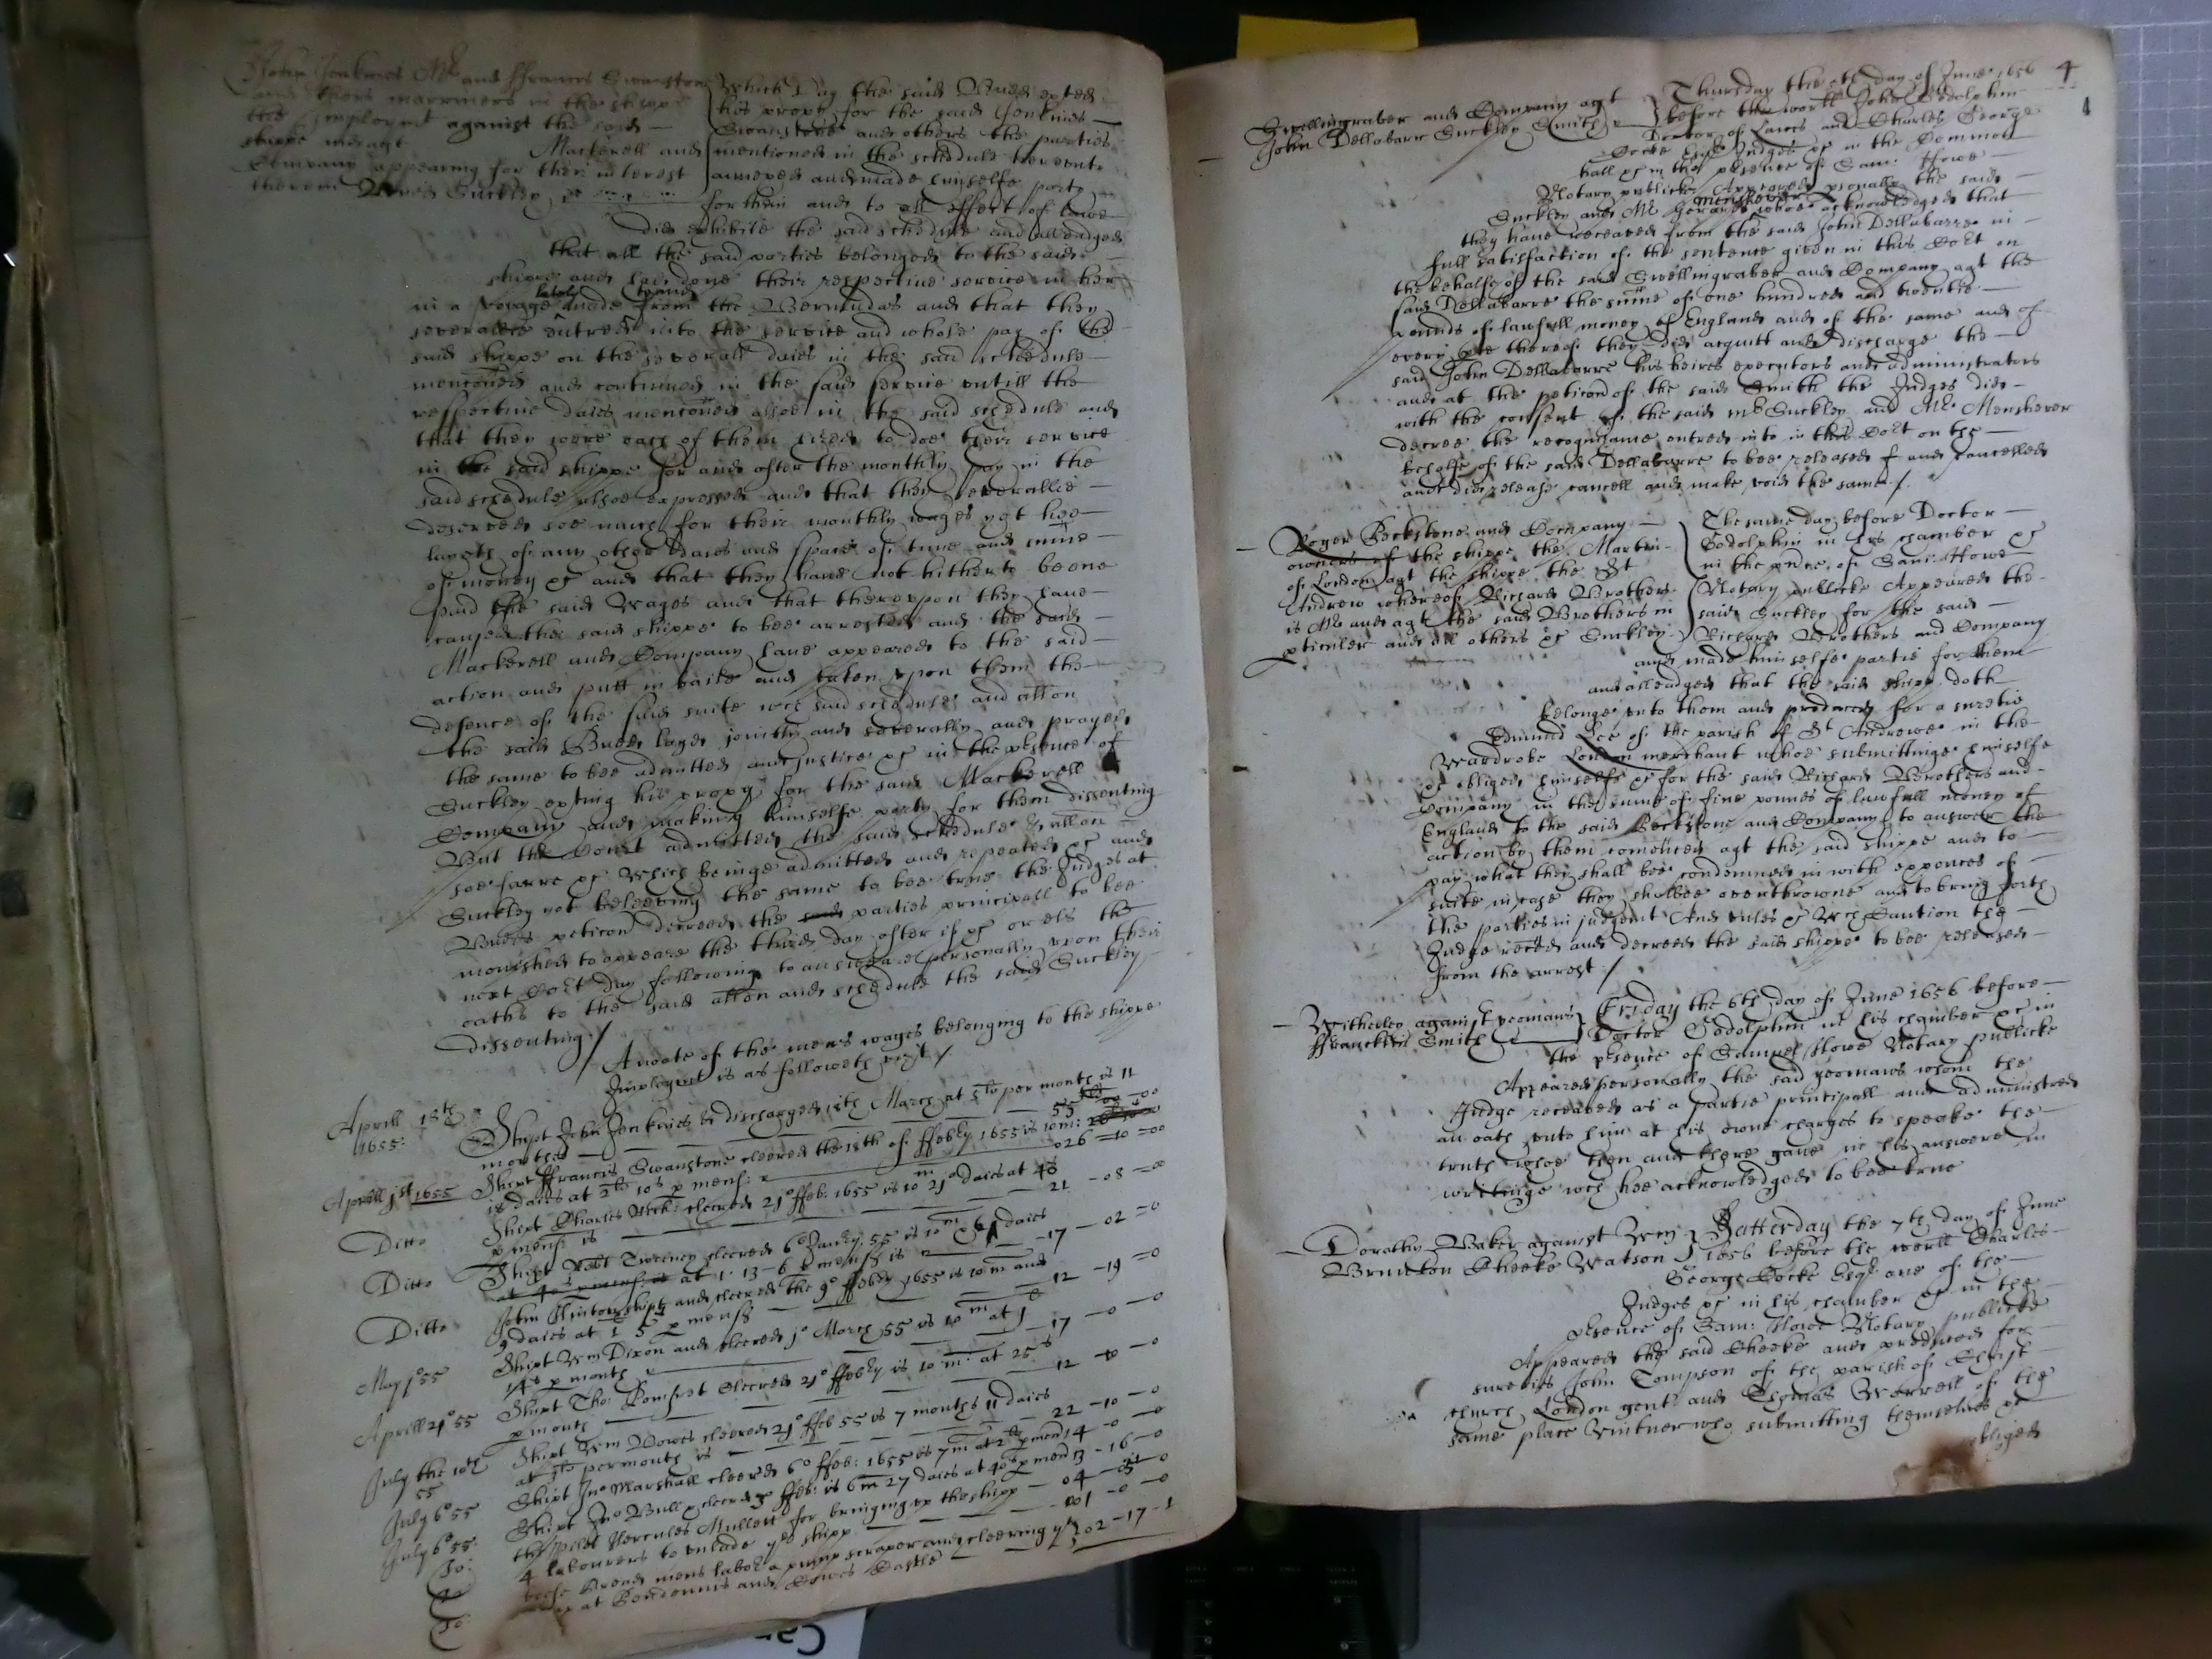 John Jenkines Mr. and ffrancis Swanstone
and others marriners in the shippe
the Imployment against the said
shippe and agt Mackerell and
Company appearing for their interest
therein Budd Suckley
Which day the said Budd exted
his proxy for the said Jenkines
Swanstone and others the parties
mentioned in the schedule hereunto
annexed and made himselfe party
for them and to all effect of lawe
did exhibite the said schedule and alleadged
that all the said parties belonged to the said
shippe and had done their respective service in her
in a voyage lately made to and from the Bermudas and that they
severallie entred into the service and whole pay of the
said shippe on the severall daies in the said schedule
mencõned and continued in the said service untill the
respective daies mencõned alsoe in the said schedule and
that they were each of them hired to doe their service
in the said shippe for and after the monthly pay in the
said schedule alsoe expressed and that they severallie
deserved soe much for their monthly wages
of any other daies and space of time and summe
of money &c and that they have not hitherto beene
paid the said wages and that thereupon they have
caused the said shippe to bee arrested and the said
Mackerell and Company have appeared to the said
action and putt in baile and taken upon them the
defence of the said suite wch said schedule and allon
the said Budd layes joinctly and severally and prayed
the same to bee admitted and justice &c in the psence of
Suckley exting his proxy for the said Mackerell
Company and making himselfe party for them dissenting
But the Court admitted the said schedule & allon
soe farre &c Which beinge admitted and repeated &c and
Suckley not beleeving the same to bee true the Judges at
Budds peticon decreed the parties principall to bee
monished to appeare the third day after if &c or els the
next Court day following to answeare personally upon their
oaths to the said allon and schedule the said Suckley
dissenting /
A noate of the mens wages belonging to the shippe
Imployment is as followeth vizt /
Aprill 18th 1655: Shipt John Jenkines & discharged 18th March at 5 lb per month is 11
monthes 55 - 00 - 00
Aprill 1st 1655 Shipt ffrancis Swanstone cleered the 18th of ffebry 1655 is 10 m:
daies at 2 lb 10s p mens: 026 = 10 = 00
Ditto Shipt Charles cleered 21o ffeb: 1655 is 10 m 21o daies at 40s
p mens is 21 - 08 - 00
Ditto Shipt Robt Tweeney cleered 6o Janry: 55 is
at 1 - 13 - 6 p mens is 17 - 02 = 0
Ditto John Clinton shipt and cleered the 9o ffebry 1655 is 10 m and
9 daies at 1 5s p mens 12 - 19 = 0
May 1o 55 Shipt Wm Dixon and cleered 1o March 55 is 10 m at 1
14s p month 17 - 0 - 0
Aprill 21o 55 Shipt Tho: Bomfret cleered 21o ffebry is 10 m. at 25s
p month 12 - 10 - 0
July the 10th 55 Shipt Wm Bowes cleered 21o ffeb 55 is 7 months 11 daies
at 3 lb per month is 22 - 10 - 0
July 6o 55 Shipt Jno Marshall cleered 6o ffeb: 1655 is 7 m at 2 lb p men 14 - 0 - 0
July 6o 55: Shipt Jno Bull cleered ffeb: is 6 m 27 daies at 40s p men 13 - 16 - 0
Do: the Pilot Hercules Mullett for bringing up the shipp 04 - 05 - 0
Do 4 labourers to unlade ye shipp 001 - 0 - 0
mens labor a pump scraper and cleering ye
Do: at Pendennis and Cowes Castle 02 - 17 - 1
4
Swellingraber and Company agt
John Dellabarre Suckley Smith
Thursday the 5th day of June 1656
before the worll John Godolphin
Doctor of Lawes and Charles George
Cocke Esqr Judges &c in the Common
hall &c in the psence of Sam: Howe
Notary publicke Appeared psonally the said
Suckley and Mr Gerard Menshever whoe acknowledged that
they have receaved from the said John Dellabarre in
full satisfaction of the sentence given in this Court on
the behalfe of the said Swellingraber and Company agt the
said Dellabarre the sume of one hundred and twentie
pounds of lawfull money of England and of the same and of
every pte thereof they did acquitt and discharge the
said John Dellabarre his heires executors and administrators
and at the peticon of the said Smith the Judges did
with the consent of the said mr Suckley and Mr. Menshever
decree the recognisance entred into in this Court on the
behalfe of the said Dellabarre to bee released and cancelled
and did release cancell and make void the same /.
Roger Beckstone and Company
owners of the shippe the Martin
of London agt the shippe the St
Andrew whereof Richard Brothers
is Mr and agt the said Brothers in
pticuler and all others &c Suckley.
The same day before Doctor
Godolphin in his chamber &c
in the psnce of Sam: Howe
Notary publicke Appeared the
said Suckley for the said
Richard Brothers and Company
and made himselfe partie for them
and alleadged that the said shipp doth
belonge unto them and produced for a suretie
Edmund Lee of the parish of St Andrewe in the
Wardrobe London merchant whoe submittinge himselfe
&c obliged himselfe &c for the said Richard Brothers and
Company in the sume of five pounds of lawfull money of
England to the said Beckstone and Company to answer the
action by them comenced agt the said shippe and to
pay what they shall bee condemned in with expences of
suite in case they shalbee overthrowne and to bring forth
the parties in judgemt And unles &c Wch Caution the
Judge reced and decreed the said shippe to bee released
from the arrest /
Witherley against yeomans
ffrancklin Smith
Friday the 6th day of June 1656 before
Doctor Godolphin in his chamber &c in
the psence of Samuel Howe Notary publicke
Appeared personally the said yeomans whom the
Judge receaved as a partie principall and administred
an oath unto him at his owne charges to speake the
truth whoe then and there gave in his answere in
writinge wch hee acknowledged to bee true
Dorathy Baker against Wm
Bruncton Cheeke Watson
Satterday the 7th day of June
1656 before the worll Charles
George Cocke Esqr. one of the
Judges &c in his chamber &c in the
psence of Sam: Howe Notary publicke
Appeared the said Cheeke and produced for
sureties John Tompson of the parish of Christ
church London gent and Thomas Worrell of the
same place Vintner who submitting themselves &c
obliged